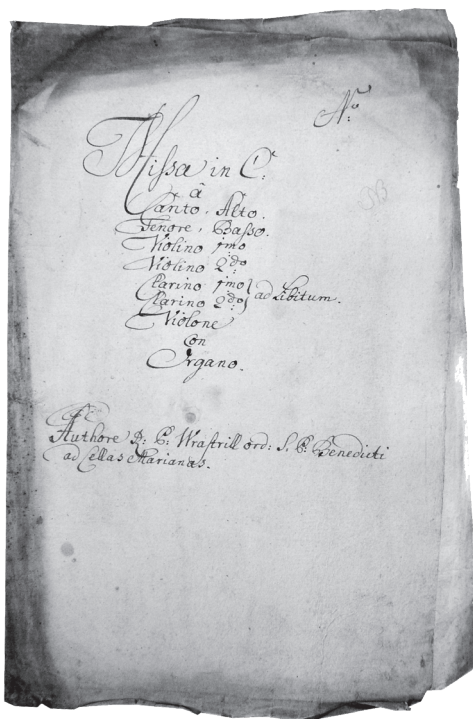 N:o
Missa in C:
à
Canto, Alto.
Tenore, Basso.
Violino 1mo
Violino 2do
Clarino 1mo } ad Libitum.
Clarino 2do
Violone
Con
Organo.
Authore R: P: Wrastrill ord: S. P: Benedicti
ad Cellas Marianas.